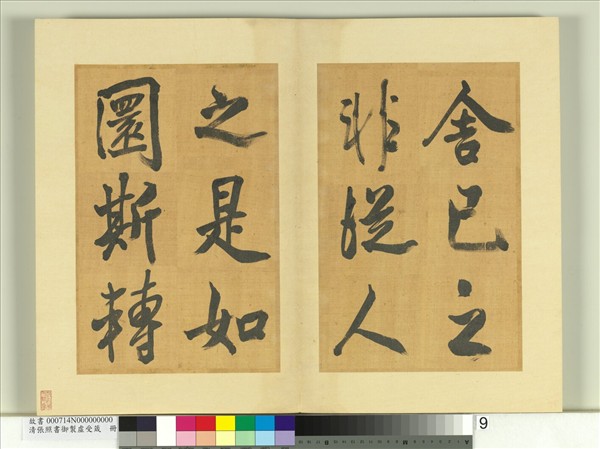 舍己之
非從人
之是如
圜斯轉
故書 000714N000000000
清張照書御製虛受箴 冊
9